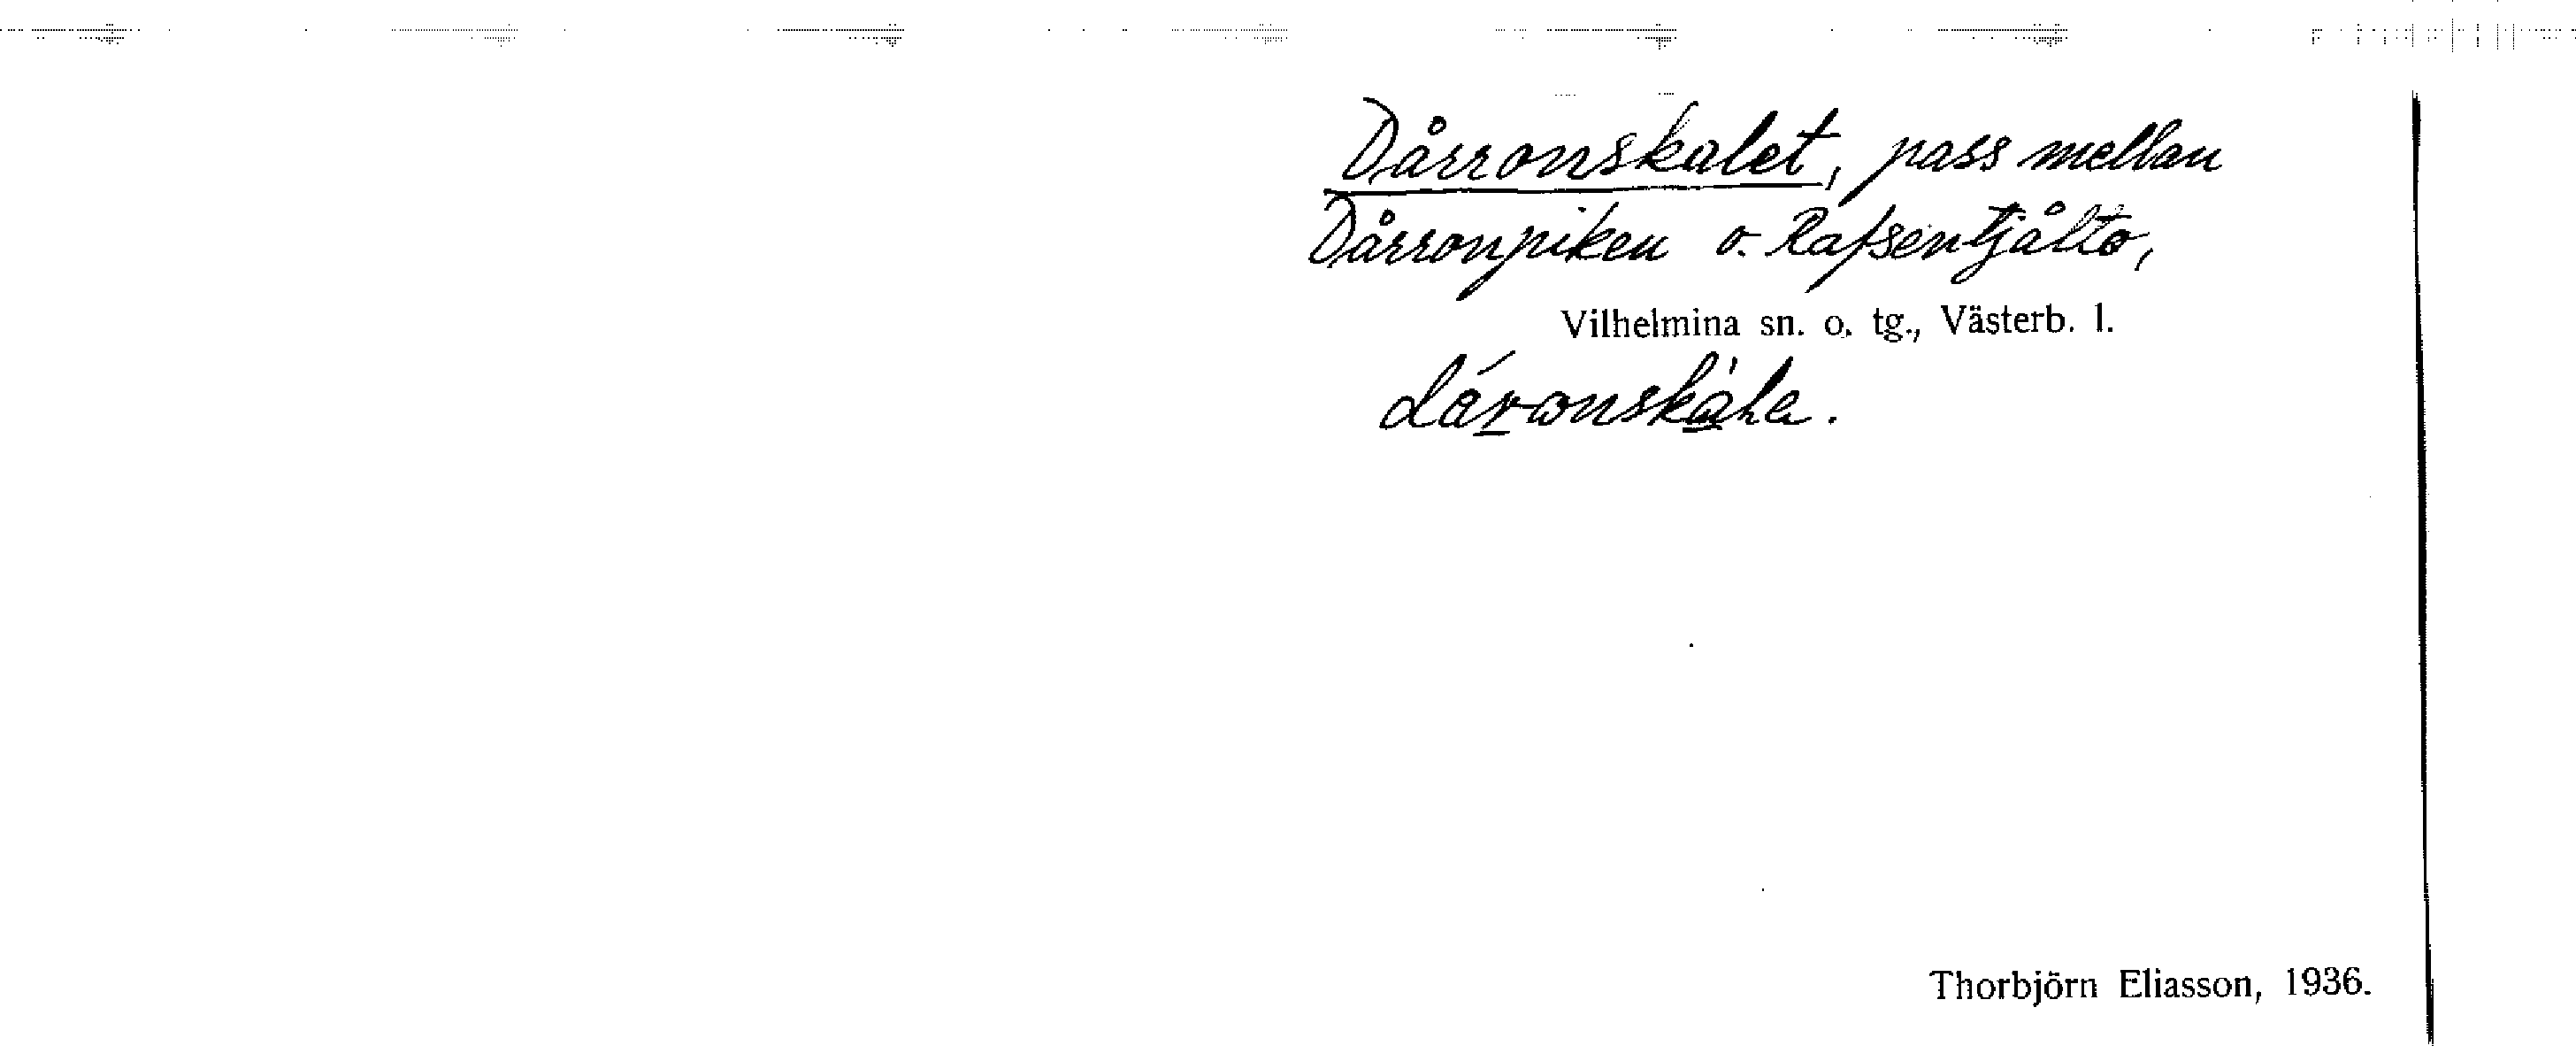 Dårronskalet, pass mellan
Dårronpiken o. Rapsentjålto,
Vilhelmina sn. o. tg., Västerb. l.
Thorbjörn Eliasson, 1936.